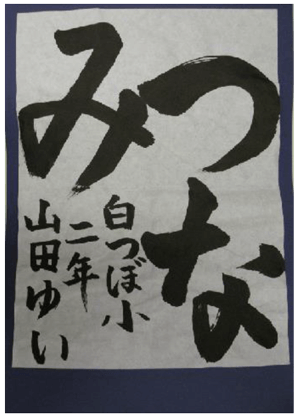 つな
み
白つぼ小
二年
山田ゆい